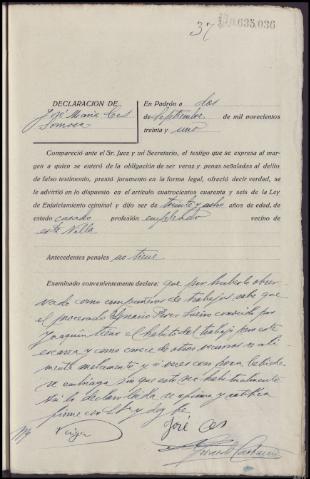 37
635,036
DECLARACION DE
José Maria Ces
Somoza
En Padrón a dos
de Septiembre de mil novecientos
treinta y uno
Compareció ante el Sr. Juez y mi Secretario, el testigo que se expresa al mar-
gen a quien se enteró de la obligación de ser veraz y penas señaladas al delito
de falso testimonio, prestó juramento en la forma legal, ofreció decir verdad, se
le advirtió en lo dispuesto en el artículo cuatrocientos cuarenta y seis de la Ley
de Enjuiciamiento criminal y dijo ser de treinta y ocho años de edad, de
estado casado profesión empleado vecino de
esta Villa
Antecedentes penales no tiene
Examinado convenientemente declara: que por haberlo obser-
vado como compañeros de trabajo, sabe que
el procesado Ignacio Perez conocido por
Joaquin tiene el habito del trabajo por este
escasea y como carece de otros recursos se ali-
menta malamente y a veces con poca bebida
se embriaga sin que esto sea habitualmente
así lo declara leida se afirma y ratifica
firma con S. Sª y doy fe
José Ces